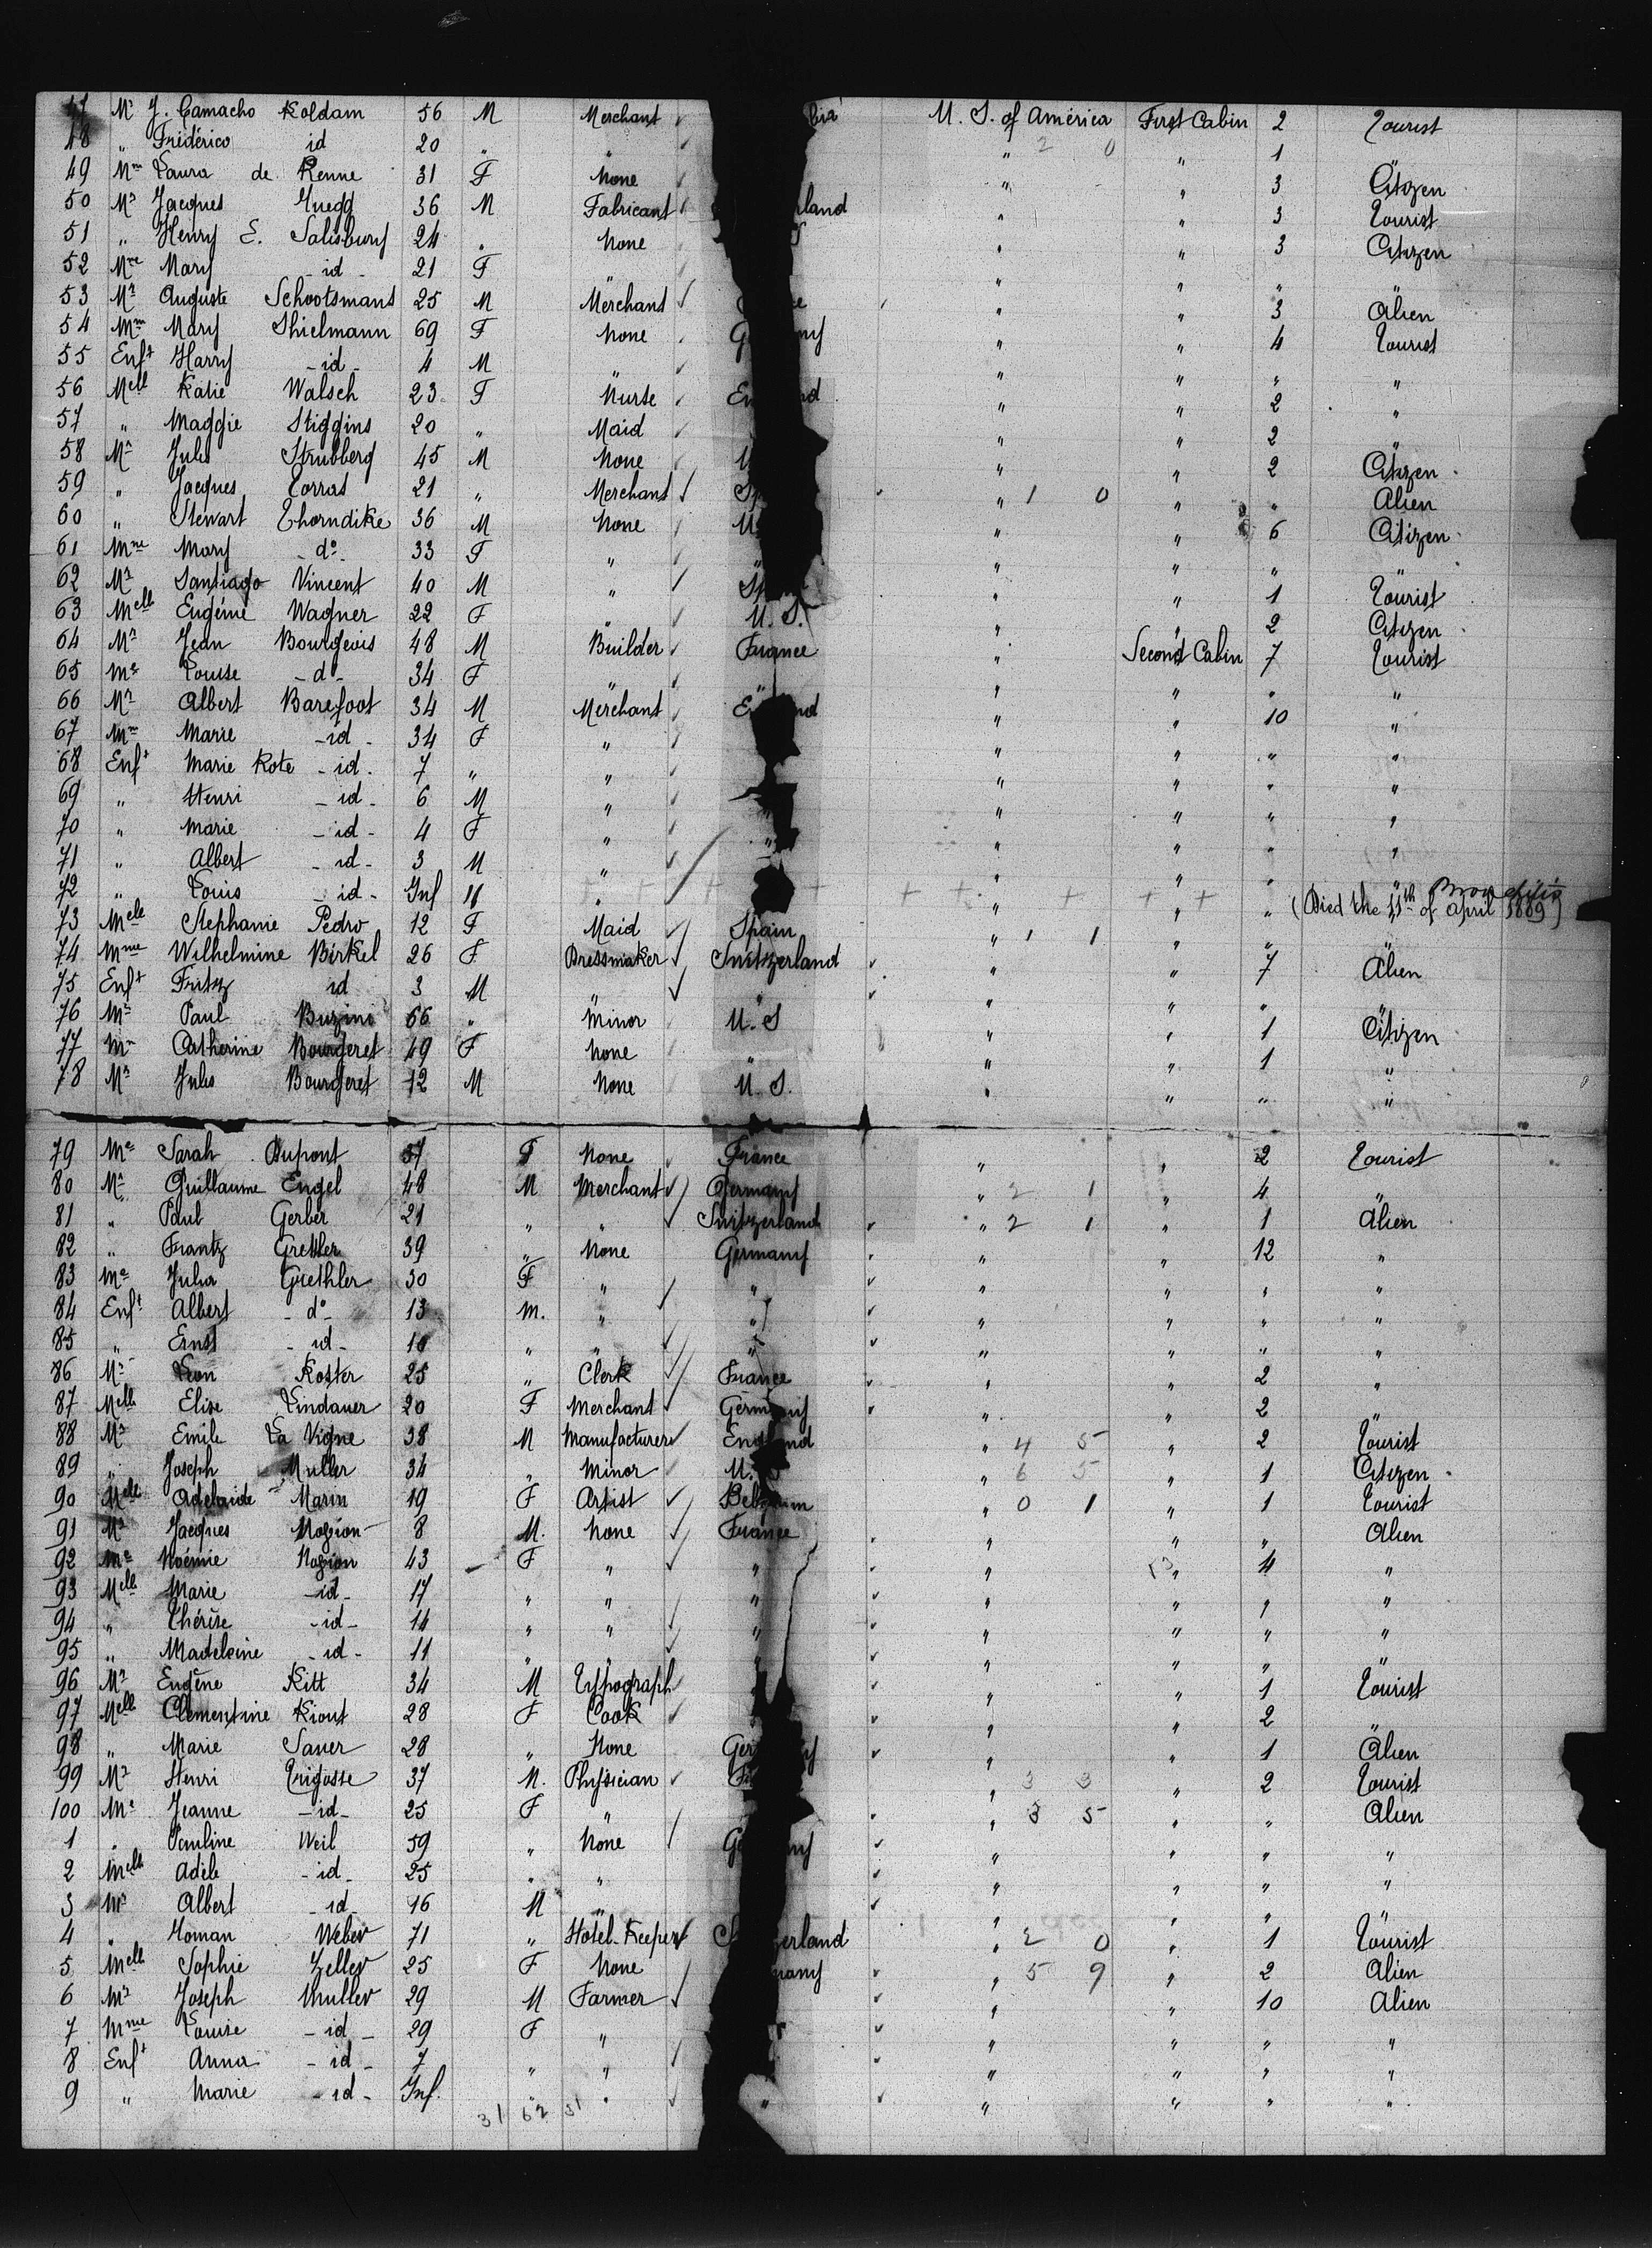 47 Mr J. Camacho Roldam 56 M Merchant bia U. S. of América First Cabin 2 Tourist
48 " Frédérico id 20 " " " 2 0 " 1 "
49 Mme Laura de Renne 31 F None " " 3 Citizen
50 Mr Jacques 36 M Fabricant land " " 3 Tourist
51 " Henry E. Salisbury 24 " None " " 3 Citizen
52 Mme Mary - id - 21 F " " " " "
53 Mr Auguste Schootsmans 25 M Merchant e " " 3 Alien
54 Mme Mary Thielmann 69 F None G ny " " 4 Tourist
55 Enft Harry - id - 4 M " " " " "
56 Melle Katie Walsch 23 F Nurse En nd " " 2 "
57 " Maggie Stiggins 20 " Maid " " 2 "
58 Mr Jules Strubberg 45 M None " " 2 Citizen
59 " Jacques Torras 21 " Merchant Sp " 1 0 " " Alien
60 " Stewart Thorndike 36 M None U " " 6 Citizen
61 Mme Mary - do - 33 F " " " " " "
62 Mr Santiago Vincent 40 M " Sp " " 1 Tourist
63 Melle Eugénie Wagner 22 F " U. S. " " 2 Citizen
64 Mr Jean Bourgeois 48 M Builder France " Second Cabin 7 Tourist
65 Me Louise - do - 34 F " " " " " "
66 Mr Albert Barefoot 34 M Merchant E nd " " 10 "
67 Mme Marie - id - 34 F " " " " "
68 Enft Marie Kate - id - 7 " " " " " "
69 " Henri - id - 6 M " " " " " "
70 " Marie - id - 4 F " " " " " "
71 " Albert - id - 3 M " " " " "
72 " Louis - id - Inf " " + + + + + + + + + " (Died the 11th of April 1889)
73 Melle Stephanie Pedro 12 F Maid Spain " 1 1 " " "
74 Mme Wilhelmine Birkel 26 F Dressmaker Switzerland " " 7 Alien
75 Enft Fritz id 3 M " " " " " "
76 Mr Paul Buzini 66 " Minor U. S " " 1 Citizen
77 Me Catherine Bourgeret 49 F None " " " 1 "
78 Mr Jules Bourgeret 12 M None U. S. " " " "
79 Me Sarah Dupont 37 F None France " " 2 Tourist
80 Mr Guillaume Engel 48 M Merchant Germany " 2 1 " 4 "
81 " Paul Gerber 21 " " Switzerland " 2 1 " 1 Alien
82 " Frantz Grethler 39 " None Germany " " 12 "
83 Me Julia Grethler 30 F " " " " " "
84 Enft Albert - do - 13 M. " " " " " "
85 " Ernst - id - 10 " " " " " " "
86 Mr Léon Koster 25 " Clerk France " " 2 "
87 Melle Elise Lindauer 20 F Merchant Germany " " 2 "
88 Mr Emile La Vigne 38 M Manufacturer England " 4 5 " 2 Tourist
89 " Joseph Muller 34 " Minor U. " 6 5 " 1 Citizen
90 Melle Adelaide Marin 19 F Artist Belgium " 0 1 " 1 Tourist
91 Mr Jacques Nozion 8 M. None France " " " Alien
92 Me Noémie Nozion 43 F " " " " 4 "
93 Melle Marie - id - 17 " " " " " " "
94 " Thérèse - id - 14 " " " " " " "
95 " Madeleine - id - 11 " " " " " "
96 Mr Eugène Kitt 34 M Typograph " " 1 Tourist
97 Melle Clementine Kiout 28 F Cook " " 2 "
98 " Marie Sauer 28 " None Ger y " " 1 Alien
99 Mr Henri Trigosse 37 M. Physician " 3 3 " 2 Tourist
100 Me Jeanne - id - 25 F " " 3 5 " " Alien
1 " Pauline Weil 59 " None G ny " " " "
2 Melle Adèle - id - 25 " " " " " "
3 Mr Albert - id - 16 M " " " " "
4 " Homan Weber 71 " Hotel-Keeper S zerland " 2 0 " 1 Tourist
5 Melle Sophie Zeller 25 F None many " 5 9 " 2 Alien
6 Mr Joseph Muller 29 M Farmer " " 10 Alien
7 Mme Louise - id - 29 F " " " " "
8 Enft Anna - id - 7 " " " " " "
9 " Marie - id - Inf. " " " " " " "
31 62 31